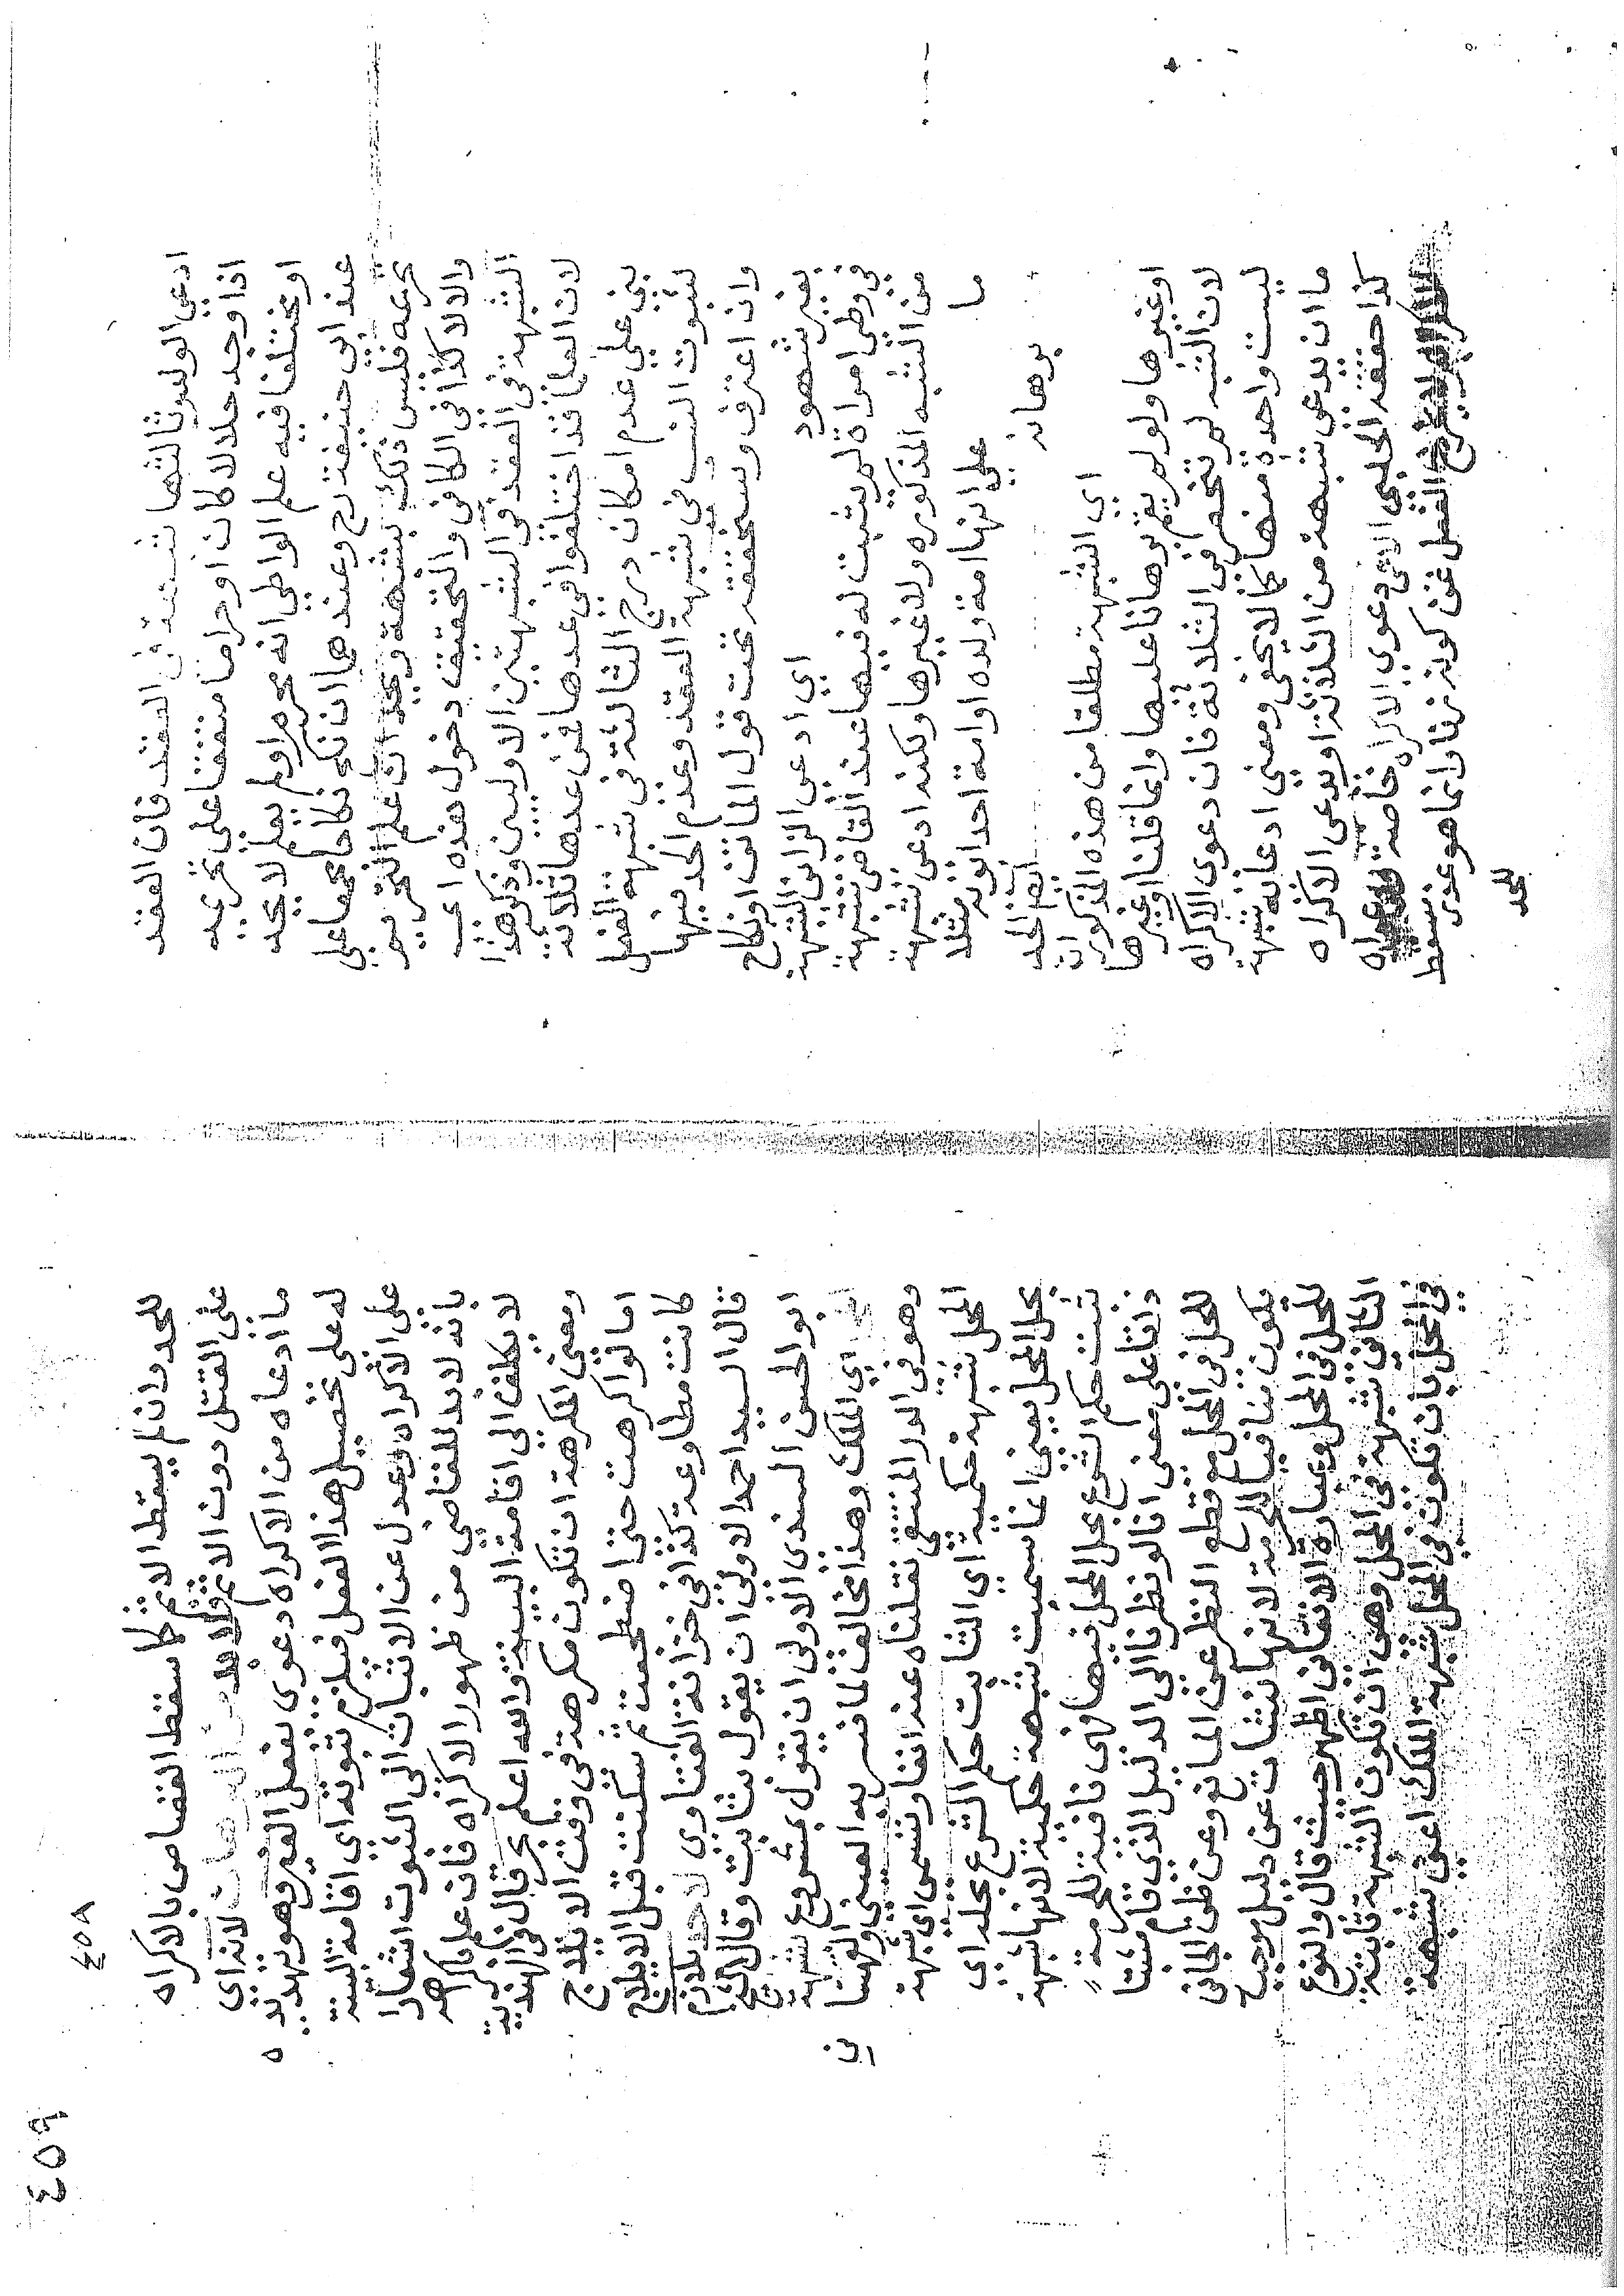 ادعي الولوثالثها شبهة في العقد فان العقد
اذا وجد حلالا كان او حراما متفقا على تحريمه
او مختلفا فيه علم الواطي انه محرم اولم يعلم لا يحد
عند ابي حنيفة رح وعندهما ان نكح نكاحا مجمعا على
تحريمه فليس ذلك بشبهة ويحد ان علم التحريم
والا لا كذا في الكافي والتحقيق دخول هذه اعـ
الشبهة في العقد في الشبهتين الاوليين وذكرهذا
لان العلما قد اختلفوا في عدها فمن عدها ثلاثة
بني على عدم امكان درج الثالثة في شبهة الفعل
لثبوت النسب في شبهة العقد وعدم الحد فيها
وان اعترف وسيحققه تحت قول الماتن او نكاح
بغير شهود اي ادعى الزاني الشبهة
في وطي امراة لم يثبت له فيها عند القاضي شبهة
من الشبه المذكورة ولا غيرها ولكنه ادعى شبهة
ما على انها امة ولده او امة احد ابويه مثلا
برهانه انتفى الحد
اي الشبهة مطلقا من هذه المذكورات
او غيرها ولو لم يقم برهانا عليها وانما قلنا او غيرها
لان الشبه لم تنحصر في الثلاثة فان دعوى الاكراه
ليست واحدة منها كما لا يخفى ومعنى ادعائه شبهة
ما ان يدعى شبهة من الثلاثة او يدعى الاكراه
كذا حققه الحلبي الا في دعوى الاكراه خاصة
الفعل عن كونه زنا وانما هو عذر مسقط
للحد

٤٥٨
٤٥٩
للحد وان لم يسقط الاثم كما سقط القصاص بالاكراه
على القتل دون الاثم فلا بد من البرهان لانه اي
ما ادعاه من الاكراه دعوى بفعل الغير وهو تهديده
له على تحصيل هذا الفعل فيلزم ثبوته اي اقامة البينة
على الاكراه وعدل عن الاثبات الى الثبوت اشعارا
بانه لابد للقاضي من ظهور الاكراه فان علم باكراهه
لا يكلف الى اقامة البينة والله اعلم بحر قال في الهندية
ومعنى المكرهة ان تكون مكرهة في وقت الايلاج
اما لو اكرهت حتى اضطجعت ثم سكنت قبل الايلاج
كانت مطاوعة كذا في خزانة الفتاوى لا حد بلازم
قال السيد احمد الاولى ان يقول بثابت وقال الشيخ
ابو الحسن السندي الاولى ان يقول بمشروع شبهة
المحل اي الملك وهذا مخالف لما فسر به العيني والقهستاني
وهو في الدر المنتقى نقلناه عند انفا وتسمى اي شبهة
المحل شبهة حكمية اي الثابت حكم الشرع بحله اي
بحل المحل يعني انما سميت شبهة حكمية لانها شبهة
ثبت حكم الشرع بحل المحل فيها فهي نافية للحرمة
ذاتا على معنى انا لو نظرنا الى الدليل الذي قام مثبتا
للحل في المحل مع قطع النظر عن المانع وعن ظن الجاني
يكون منافيا للحرمة لانها نشات عن دليل موجب
للحل في المحل وعبارة الاتقاني اظهر حيث قال والنوع
الثاني شبهة في المحل وهي ان تكون الشبهة ثابتة
في المحل بان تكون في المحل شبهة الملك اعني شبهة